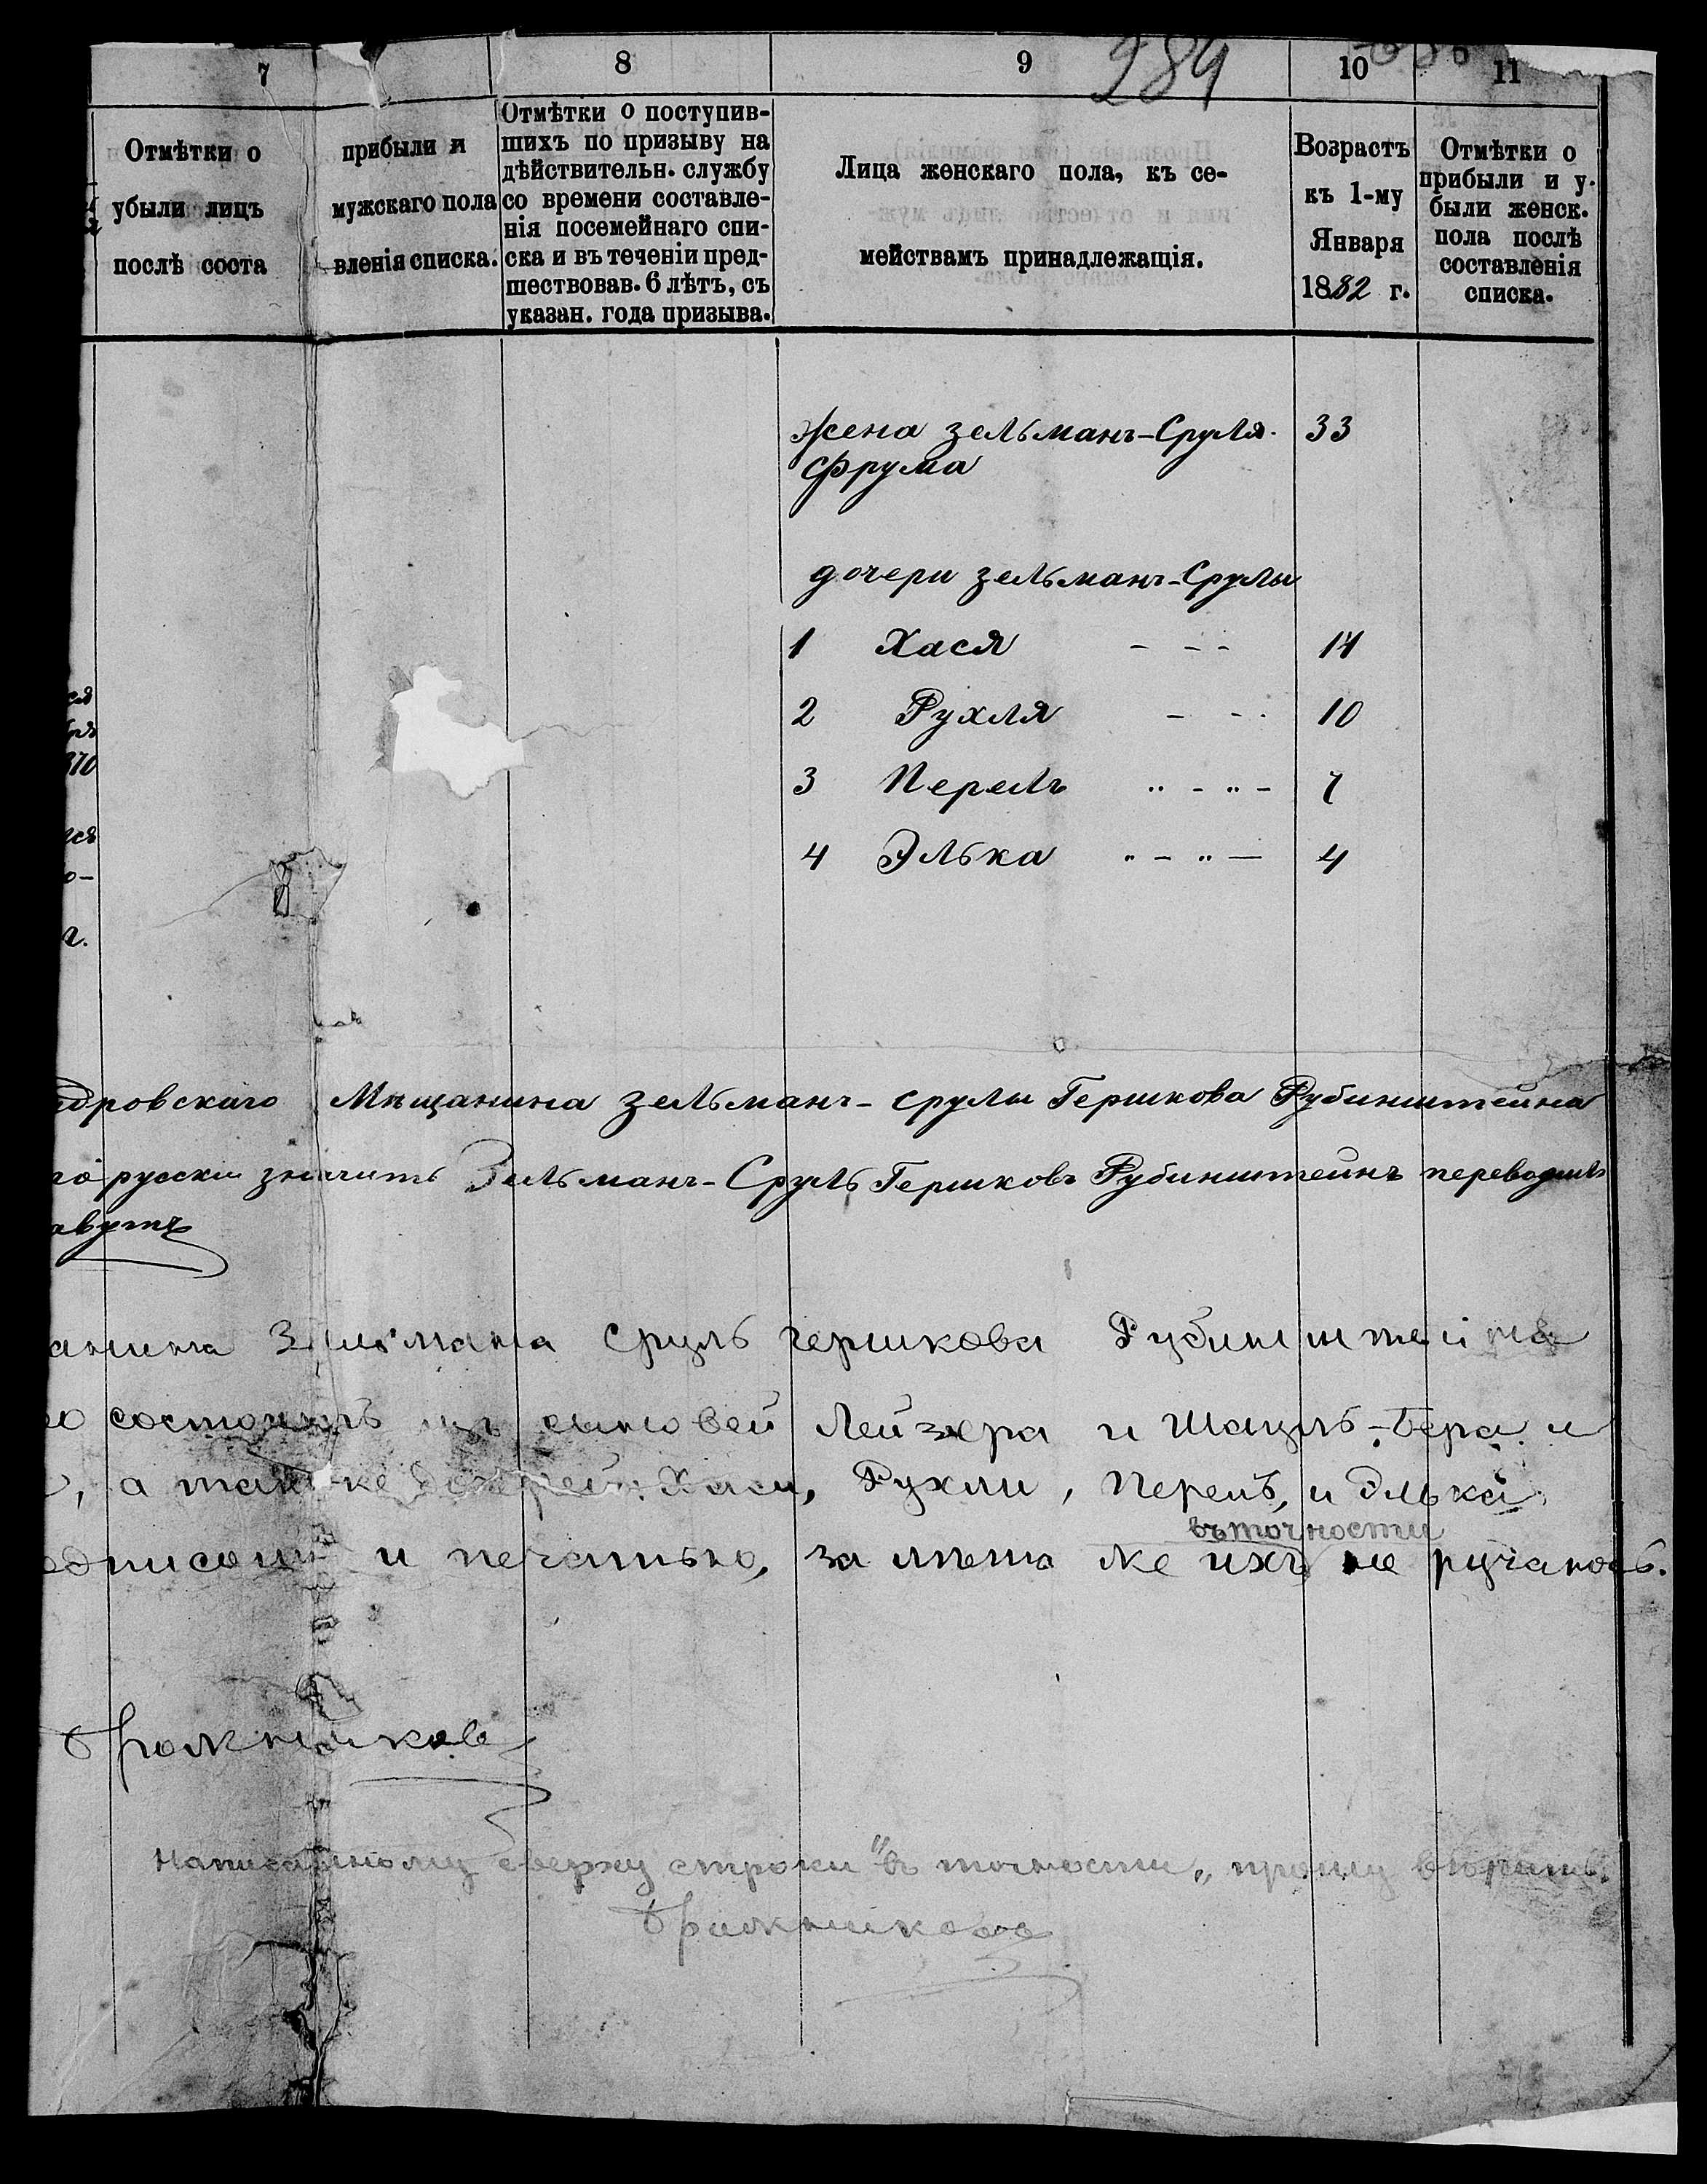 289
7 8 9 10 11
Отмѣтки о прибыли и
убыли лицъ мужскаго пола
послѣ соста вленія списка.
Отмѣтки о поступив-
шихъ по призыву на
дѣйствительн. службу
со времени составле-
нія посемейнаго спи-
ска и въ теченіи пред-
шествовав. 6 лѣтъ, съ
указан. года призыва.
Лица женскаго пола, къ се-
мействамъ принадлежащія.
Возрастъ
къ 1-му
Января
1882 г.
Отмѣтки о
прибыли и у-
были женск.
пола послѣ
составленія
списка.
Жена Зельманъ-Сруля 33
Фрума
дочери Зельманъ-Срулы
1 Хася - - - 14
2 Рухля - - - 10
3 Перель " - " - 7
4 Элька " - " - 4
ся
870
лся
о-
г.
дровскаго Мѣщанина Зельманъ-Срулы Гершкова Рубинштейна
по русски значитъ Зельманъ-Сруль Гершковъ Рубинштейнъ переводилъ
авутъ
анина Зельмана Сруль Гершкова Рубинштейна
состоитъ изъ сыновей Лейзера и Шацуль-Бера и
, а также дочерей: Хаси, Рухли, Перель, и Элька
въ точности
одписомъ и печатью, за лѣта же ихъ не ручаюсь.
Бражниковъ
Написанному сверху строки "въ точности" прошу вѣрить.
Бражниковъ